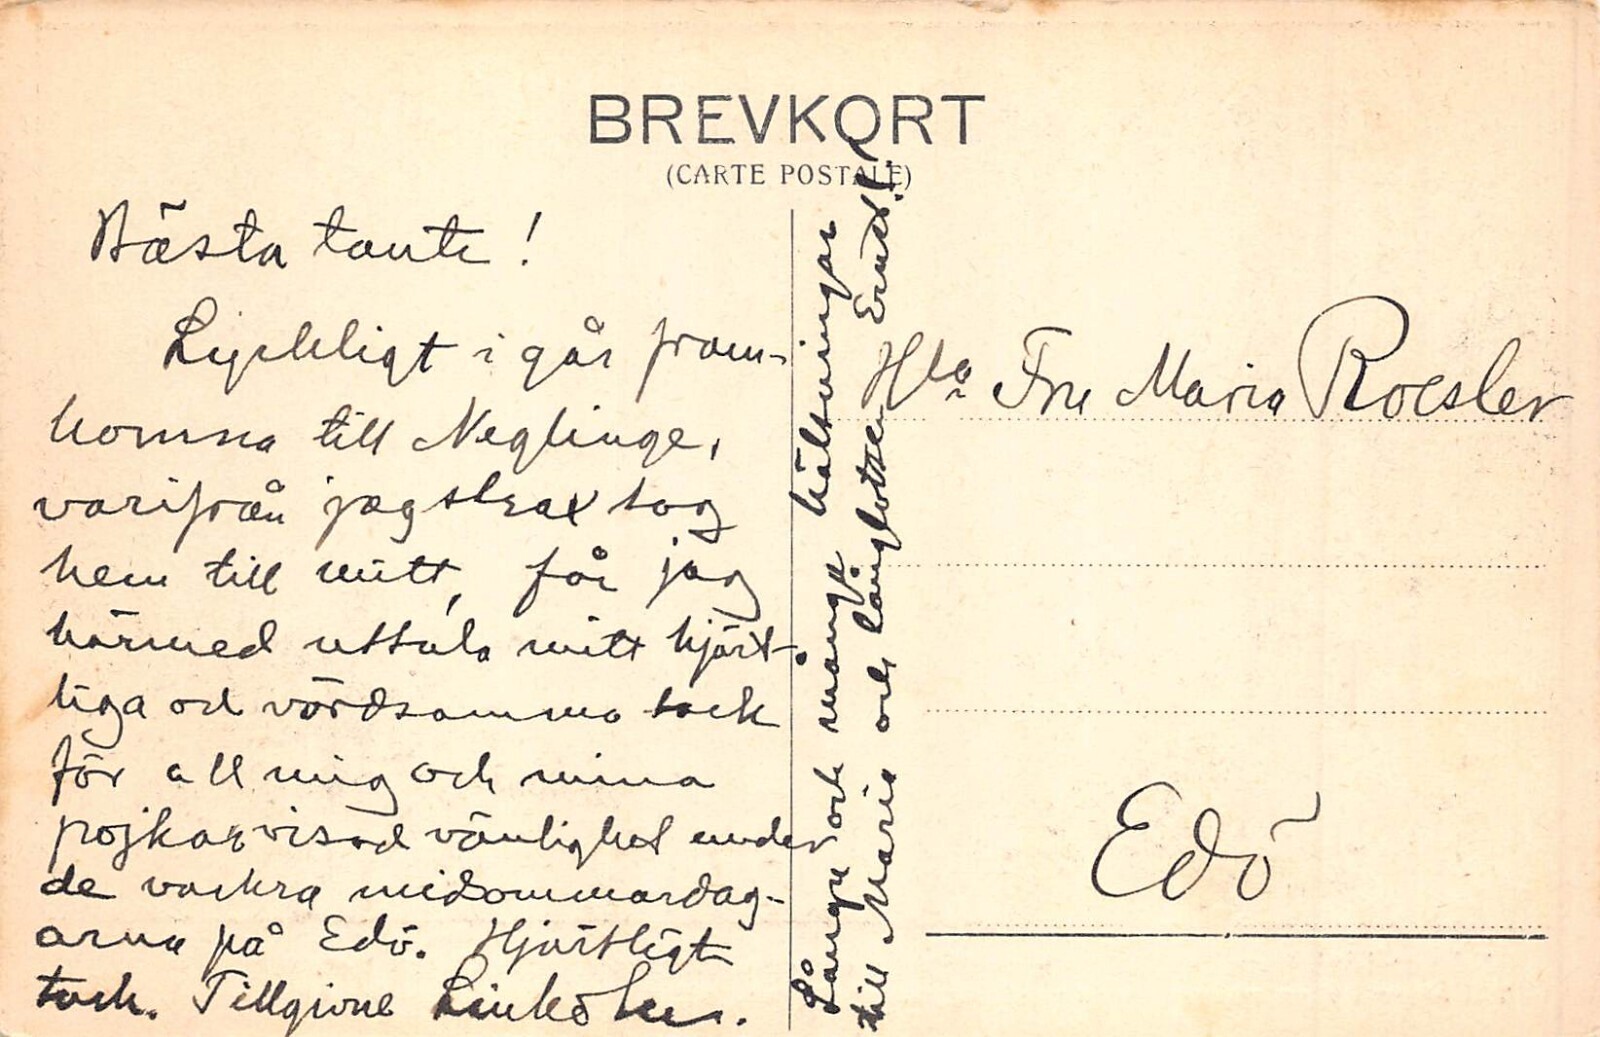 BREVKORT
(CARTE POSTALE)
Bästa tante!
Lyckligt i går fram-
komna till Neglinge,
varifrån jag strax tog
hem till mitt, får jag
härmed uttala mitt hjärt-
liga och vördsamma tack
för all mig och mina
pojkar visad vänlighet under
de vackra midsommardag-
arna på Edö. Hjärtligt
tack. Tillgivne
Långa och många hälsningar
till Maria och
H Fru Maria Roesler
Edö